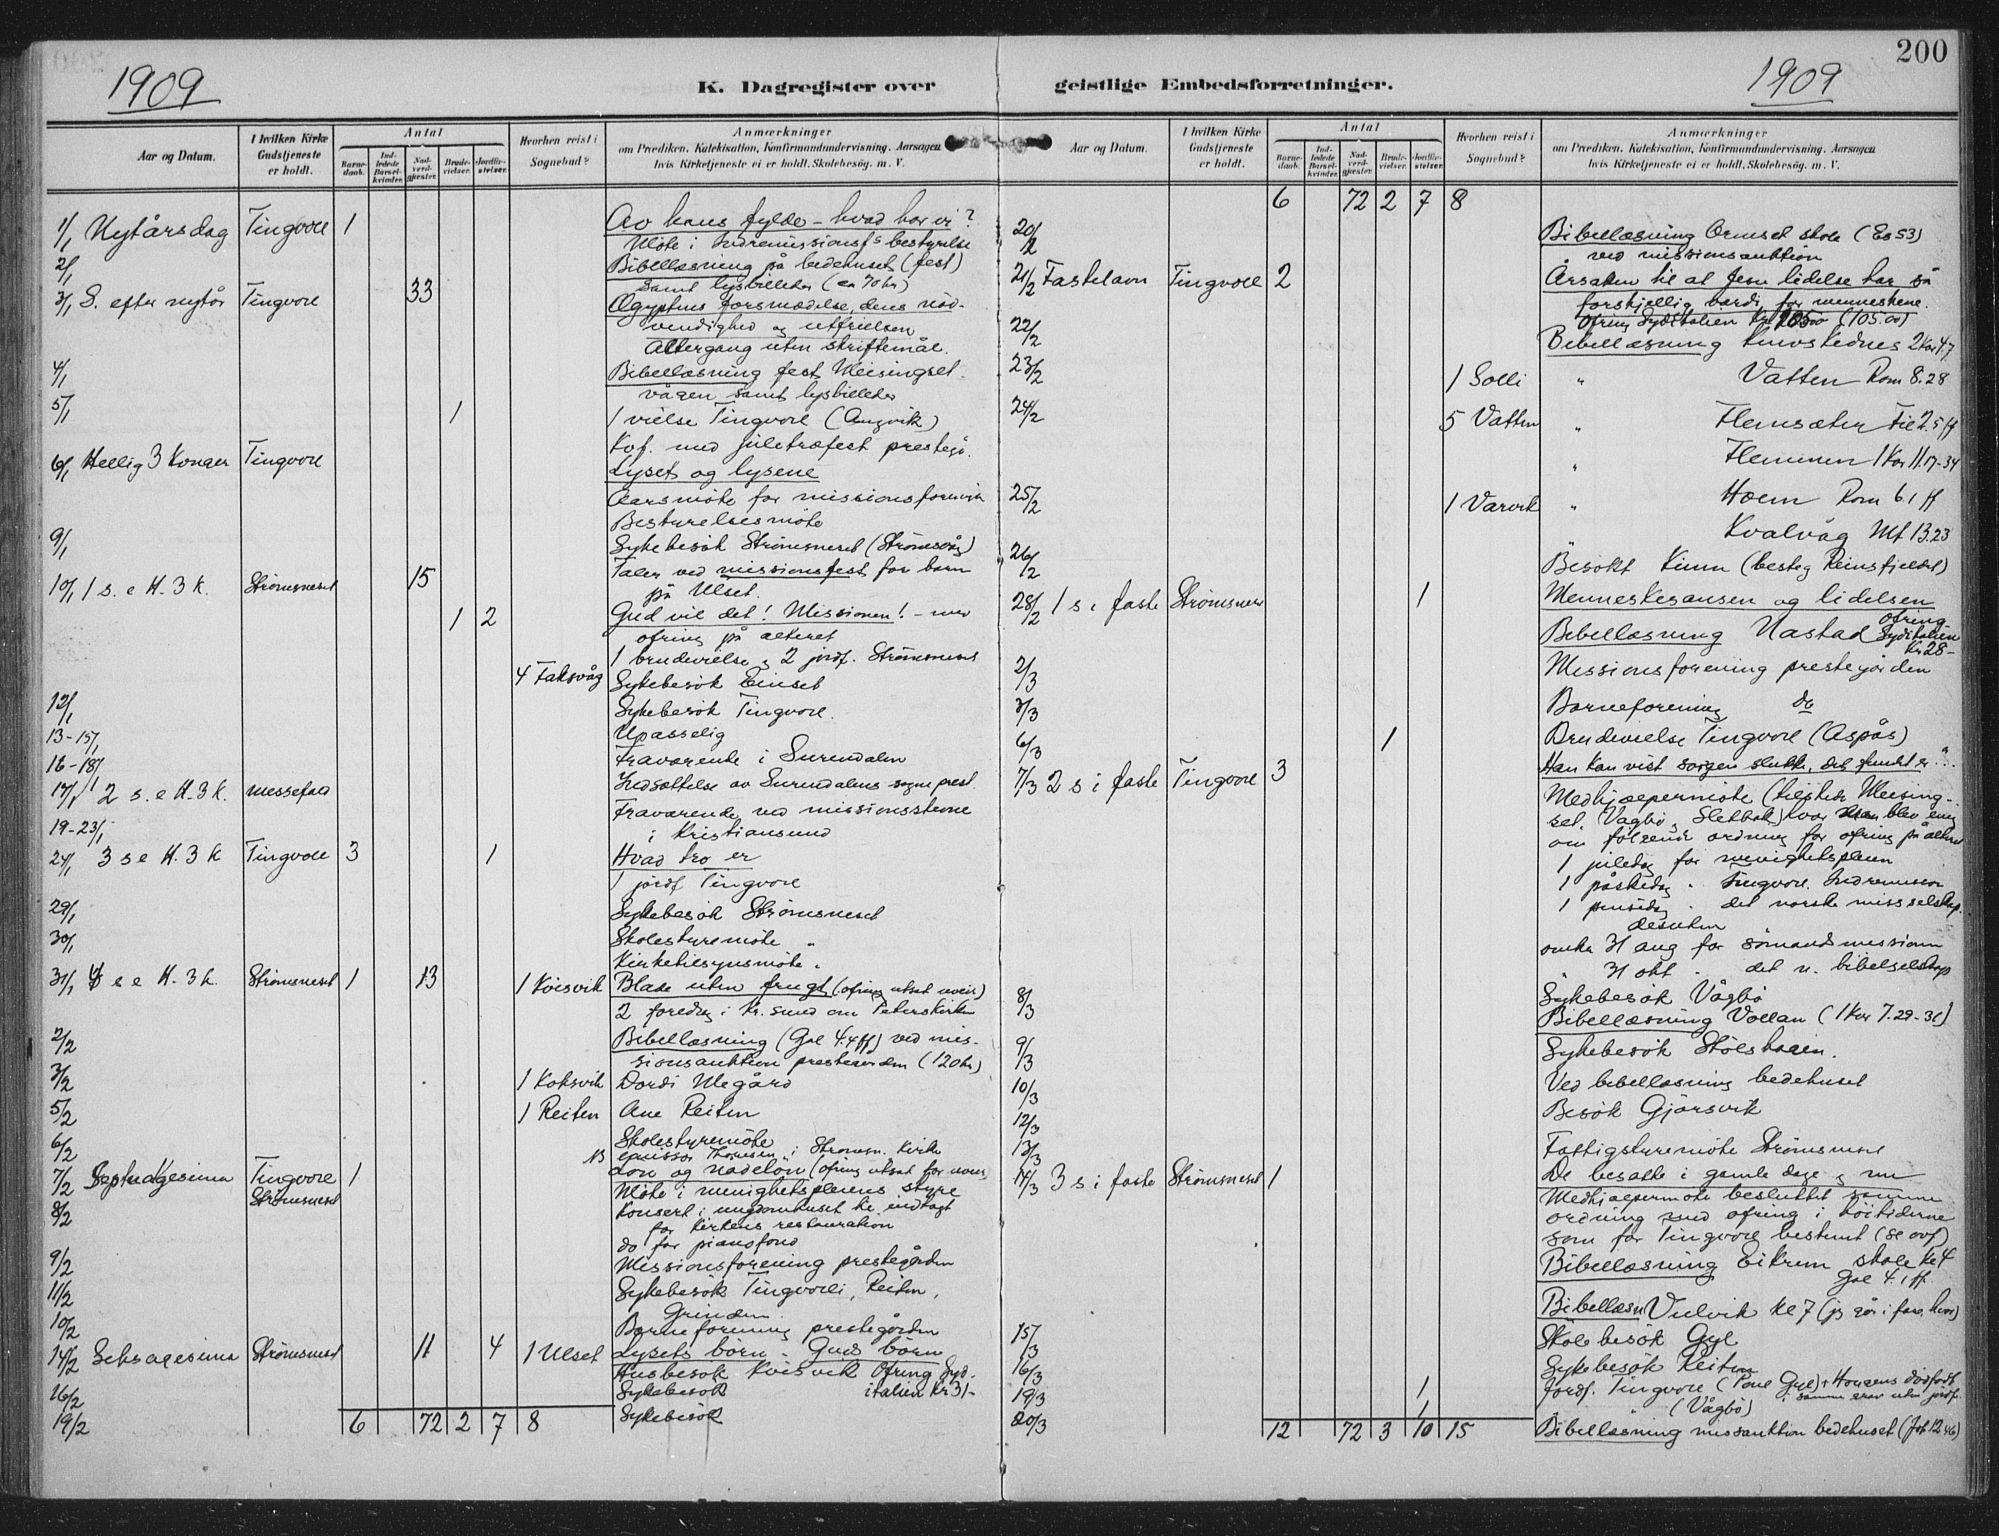 1909
K. Dagregister over
Aar og Datum.
I hvilken Kirke Gudstjeneste er holdt.
Antal
Barnedaab.
Indledede Barselkvinder.
Nadverdgjester.
Brudevielser.
Jordfæstelser.
Hvorhen reist i Sognebud?
Anmærkninger
om Prædiken. Katekisation, Konfirmandundervisning. Aarsagen
hvis Kirketjeneste ei er holdt. Skolebesøg. m. V.
1/1 Nytårsdag Tingvoll 1 Av hans fylde - hvad har vi?
Møte i Indremissionsfs bestyrelse
2/1 Bibellæsning på bedehuset (fest)
samt lysbilleder (ca 70 kr)
3/1 S. efter nytår Tingvoll 33 Ægyptens fornedrelse, dens nød-
vendighed og utfrielsen
Altergang uten skriftemål.
4/1 Bibellæsning fest Meisingset-
vågen samt lysbilleder
5/1 1 1 vielse Tingvoll (Angvik)
Kof. med juletræfest prestegå.
6/1 Hellig 3 Konger Tingvoll Lyset og lysene
Aarsmøte for missionsforenin
Bestyrelsesmøte
9/1 Sykebesøk Strømsneset (Strømsvåg)
10/1 1 s. e H. 3 k. Strømsneset 15 Taler ved missionsfest for barn
på Ulset.
1 2 Gud vil det! Missionen! - med
ofring på alteret
1 brudevielse, 2 jordf. Strømsneset
4 Faksvåg Sykebesøk Einset
12/1 Sykebesøk Tingvoll.
13-15/1 Upasselig
16-18/1 Fraværende i Surendalen
17/1 2 s. e H. 3 k. messefall Indsættelse av Surendalens sogneprest.
19-23/1 Fraværende ved missionsstevne
i Kristiansund
24/1 3 s e H. 3 k Tingvoll 3 1 Hvad tro er
1 jordf Tingvoll
29/1 Sykebesøk Strømsneset
30/1 Skolestyremøte "
Kirketilsynsmøte "
31/1 4 s e H. 3 k. Strømsneset 1 13 1 Koisvik Blade uten frugt (ofring utsat uveir)
2 foredrag i Kr. sund om Peterskirken
2/2 Bibellæsning (Gal 4.4 ff) ved mis-
sionsauktion prestegården (120 kr)
3/2 1 Koksvik Dordi Megård
5/2 1 Reiten Ane Reiten
6/2 Skolestyremøte
NB emissær Thoresen i Strømsn. Kirke
7/2 Septuagesima Tingvoll 1 Løn og nådeløn (ofring utsat for uveir)
Strømsneset Møte i menighetspleiens styre
8/2 Konsert i ungdomhuset til indtægt
for kirkens restauration
do for pianofond
9/2 Missionsforening prestegården
11/2 Sykebesøk Tingvoll, Reiten,
Grinden
10/2 Barneforening prestegården
14/2 Seksagesima Strømsneset 11 4 1 Ulset Lysets børn - Guds børn
Husbesøk Koisvik Ofring Syd-
16/2 Sykebesøk italien Kr 31-
19/2 6 72 2 7 8 Sykebesøk
200
1909
geistlige Embedsforretninger.
Aar og Datum.
I hvilken Kirke Gudstjeneste er holdt.
Antal
Barnedaab.
Indledede Barselkvinder.
Nadverdgjester.
Brudevielser.
Jordfæstelser.
Hvorhen reist i Sognebud?
Anmærkninger
om Prædiken. Katekisation, Konfirmandundervisning. Aarsagen
hvis Kirketjeneste ei er holdt. Skolebesøg. m. V.
6 72 2 7 8
20/2 Bibellæsning Ormset skole (Es 53)
ved missionsauktion
21/2 Fastelavn Tingvoll 2 Årsaken til at Jesu lidelse har så
forskjellig værdi for menneskene.
Ofring Syditalien Kr (105.00)
22/2 Bibellæsning 2 Kor 4.7
23/2 1 Solli " Vatten Rom 8.28
24/2 5 Vatten " Flemsæter Fil 2.5 ff
" Flemmen 1 Kor 11.17-34
25/2 1 Varvik " Hoem Rom 6.1 ff
Kvalvåg Mt 13.23
26/2 Besøkt Kinn (besteg Reinsfjeldet)
28/2 1 s i faste Strømsnes 1 Menneskesønnen og lidelsen
Bibellæsning Nastad Ofring Syditalien
Kr 28-
2/3 Missionsforening prestegården
3/3 Barneforening do
6/3 1 Brudevielse Tingvoll (Aspås)
7/3 2 s i faste Tingvoll 3 Han kan vist sorgen slukke, det fundet er "."
Medhjælpermøte (tilstede Meising-
set, Vågbø, Sletbak) hvor blev enig
om følgende ordning for ofring på alteret
1 juledag for menighetspleien
1 påskedag . Tingvoll Indremission
1 pinsedag . det norske misselskap.
desuten
omkr 31 aug for sømandsmissionen
" 31 okt . det n. bibelselskap
8/3 Sykebesøk Vågbø
Bibellæsning Vollan (1 Kor 7.29-31)
9/3 Sykebesøk Stølshagen.
10/3 Ved bibellæsning bedehuset
12/3 Besøk Gjørsvik
13/3 Fattigstyremøte Strømsneset
14/3 3 s i faste Strømsneset 1 De besatte i gamle dage og nu
Medhjælpermøte besluttet samme
ordning med ofring i høitiderne
som for Tingvoll bestemt (se ovf)
Bibellæsning Eikrem skole kl 4
Gal 4.1 ff.
Bibellæsn Vulvik kl 7
15/3 Skolebesøk Gyl
16/3 Sykebesøk Reiten
19/3 1 Jordf. Tingvoll (Paul Gyl)
1 (Vågbø)
20/3 12 72 3 10 15 Bibellæsning missauktion bedehuset (Joh 12 46)